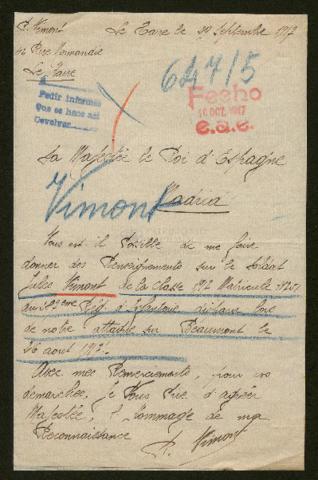 P. Vimont Le Havre le 29 Septembre 1917
41 Rue Normandie
Le Havre
647/5
Pedir informes
que se hace así
Devolver
Fecho
16 OCT. 1917
e.a.e.
Sa Majestée le Roi d'Espagne
Vimont
Madrid
Vous est il Possible de me faire
donner des Renseignements sur le Soldat
Jules Vimont de la classe 1917 Matricule
au 129eme Regt d'Infanterie disparu lors
de notre attaque sur Beaumont le
26 août 1917.
Avec mes Remerciements, pour vos
démarches, je Vous Prie d'agréer
Majestée, l'Hommage de ma
Reconnaissance P. Vimont